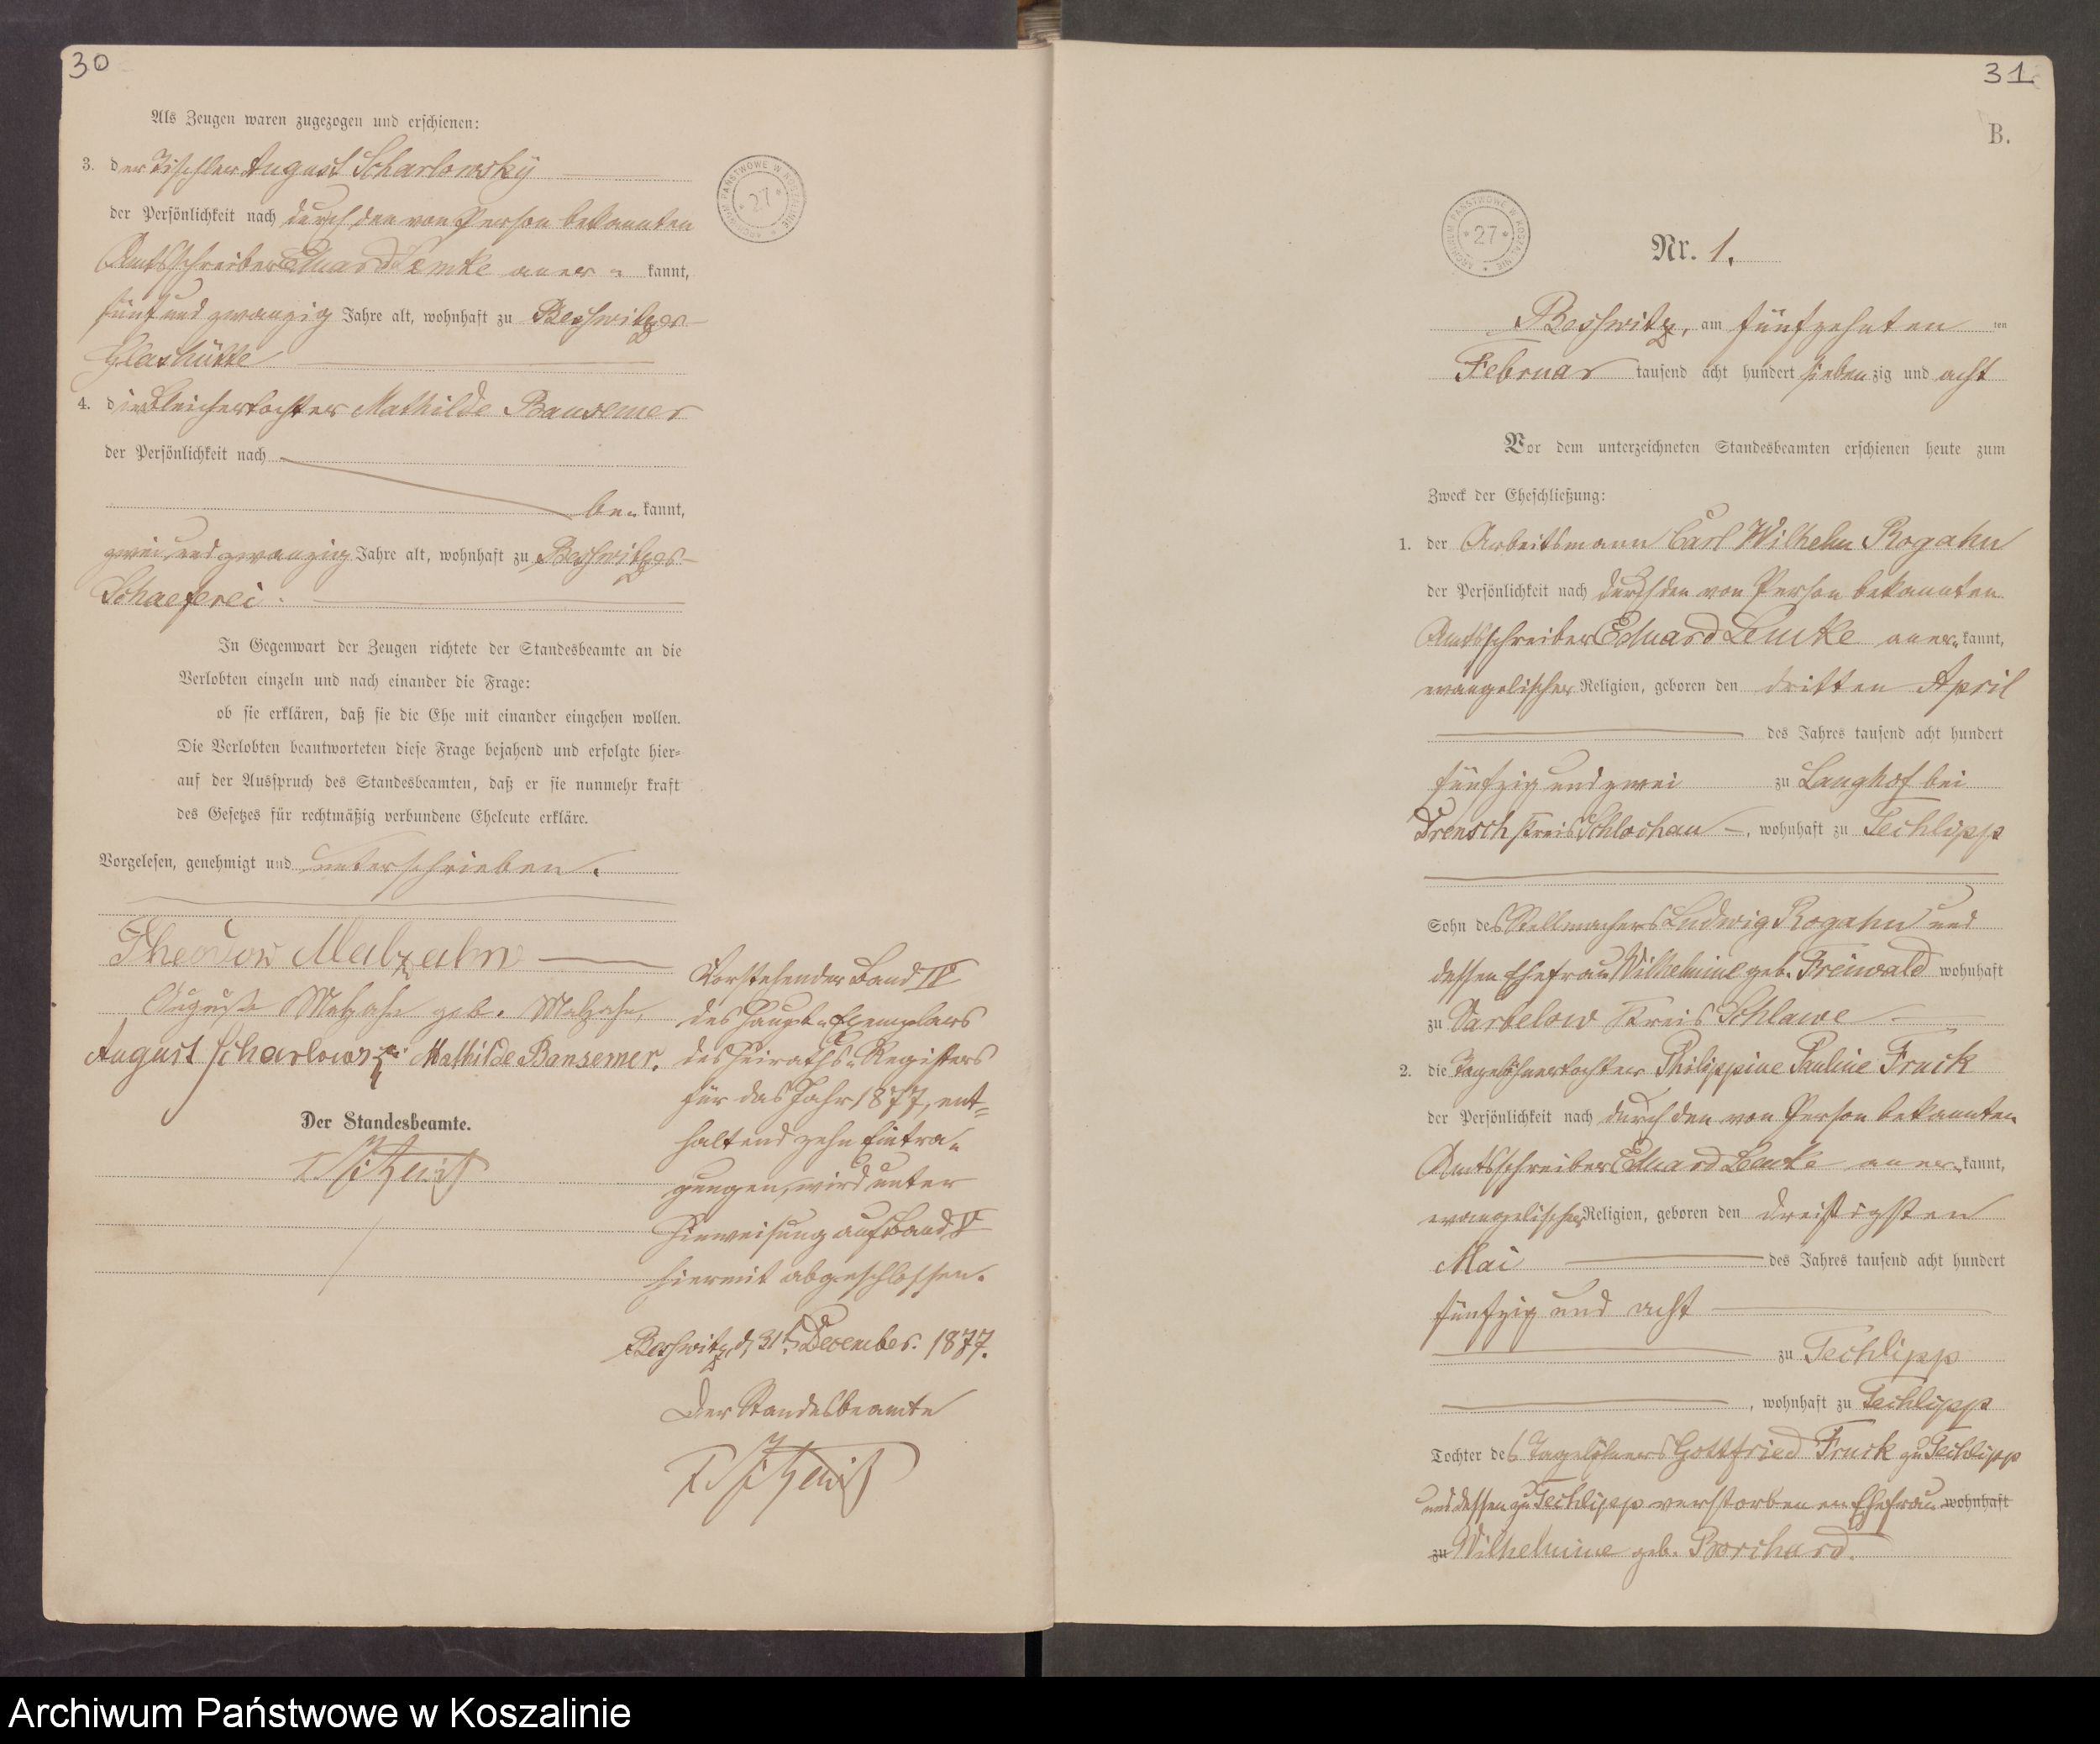 30
Als Zeugen waren zugezogen und erschienen:
3. der Tischler August Scharlowsky
der Persönlichkeit nach durch den von Person bekannten
Amtsschreiber Eduard Lemke aner- kannt,
fünf und zwanzig Jahre alt, wohnhaft zu Besswitzer-
Glashütte
4. die Bleichertochter Mathilde Bansemer
der Persönlichkeit nach
be- kannt,
zwei und zwanzig Jahre alt, wohnhaft zu Besswitzer-
Schaeferei.
In Gegenwart der Zeugen richtete der Standesbeamte an die
Verlobten einzeln und nach einander die Frage:
ob sie erklären, daß sie die Ehe mit einander eingehen wollen.
Die Verlobten beantworteten diese Frage bejahend und erfolgte hier-
auf der Ausspruch des Standesbeamten, daß er sie nunmehr kraft
des Gesetzes für rechtmäßig verbundene Eheleute erkläre.
Vorgelesen, genehmigt und unterschrieben.
Theodor Malzahn
Auguste Malzahn geb. Malzahn,
August Scharlowszki Mathilde Bansemer.
Der Standesbeamte.
Vorstehender Band IV
des Haupt-Exemplars
des Heiraths-Registers
für das Jahr 1877, ent-
haltend zehn Eintra-
gungen, wird unter
Hinweisung auf Band V
hiermit abgeschlossen.
Besswitz, d. 31t. December. 1877.
Der Standesbeamte
ARCHIWUM PAŃSTWOWE W KOSZALINIE
* 27 *
31
B.
ARCHIWUM PAŃSTWOWE W KOSZALINIE
* 27 *
Nr. 1.
Besswitz, am fünfzehnten ten
Februar tausend acht hundert siebenzig und acht
Vor dem unterzeichneten Standesbeamten erschienen heute zum
Zweck der Eheschließung:
1. der Arbeitsmann Carl Wilhelm Rogahn
der Persönlichkeit nach durch den von Person bekannten
Amtsschreiber Eduard Lemke aner- kannt,
evangelischer Religion, geboren den dritten April
des Jahres tausend acht hundert
fünfzig und zwei zu Langhof bei
Prensch Kreis Schlochau, wohnhaft zu Techlipp
Sohn des Stellmachers Ludwig Rogahn und
dessen Ehefrau Wilhelmine geb. Freiwald wohnhaft
zu Varbelow Kreis Schlawe
2. die Tagelöhnertochter Philippine Pauline Fruck
der Persönlichkeit nach durch den von Person bekannten
Amtsschreiber Eduard Lemke aner- kannt,
evangelischer Religion, geboren den dreißigsten
Mai des Jahres tausend acht hundert
fünfzig und acht
zu Techlipp
, wohnhaft zu Techlipp
Tochter des Tagelöhners Gottfried Fruck zu Techlipp
und dessen zu Techlipp verstorbenen Ehefrau wohnhaft
zu Wilhelmine geb. Borchard.
Archiwum Państwowe w Koszalinie